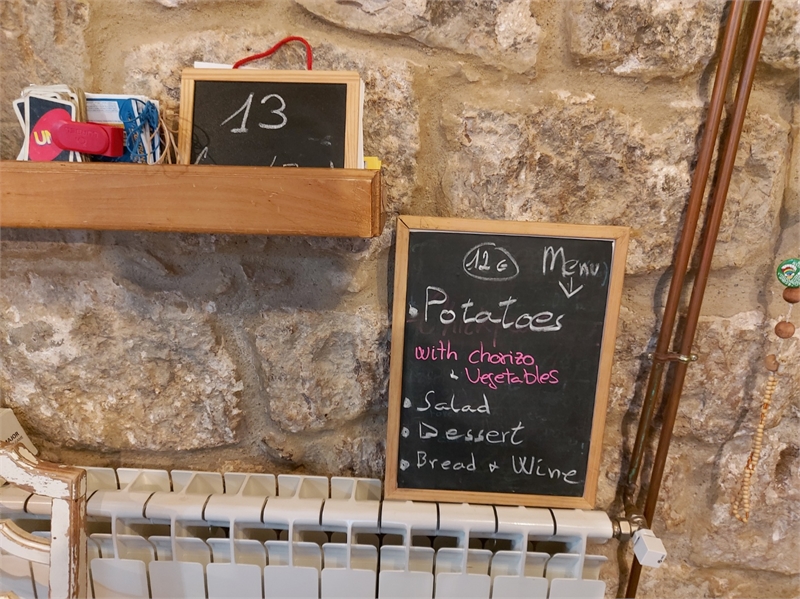 13
12€ Menu
Potatoes
with chorizo
+ Vegetables
Salad
Dessert
Bread + Wine